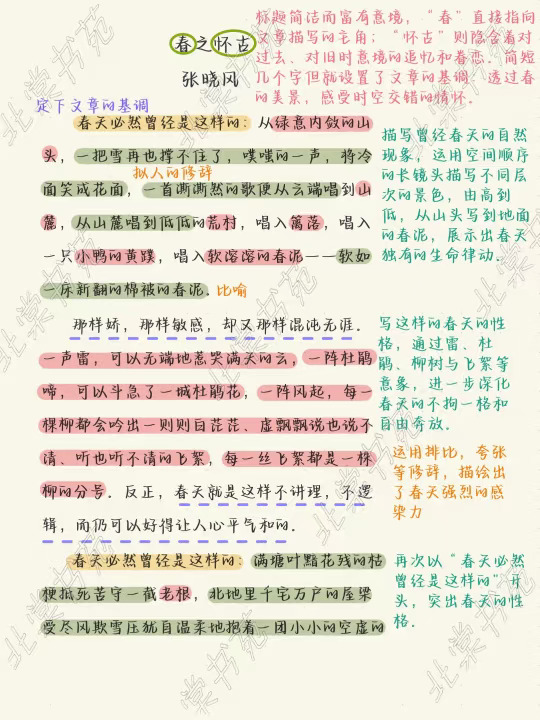 春之怀古
张晓风
标题简洁而富有意境，“春”直接指向
文章描写的主角；“怀古”则隐含着对
过去、对旧时意境的追忆和眷恋。简短
几个字但就设置了文章的基调。透过春
的美景，感受时空交错的情怀。
定下文章的基调
春天必然曾经是这样的：从绿意内敛的山
头，一把雪再也撑不住了，噗嗤的一声，将冷
拟人的修辞
面笑成花面，一首澌澌然的歌便从云端唱到山
麓，从山麓唱到低低的荒村，唱入篱落，唱入
一只小鸭的黄蹼，唱入软溶溶的春泥——软如
一床新翻的棉被的春泥.
比喻
描写曾经春天的自然
现象，运用空间顺序
的长镜头描写不同层
次的景色，由高到
低，从山头写到地面
的春泥，展示出春天
独有的生命律动.
那样娇，那样敏感，却又那样混沌无涯.
一声雷，可以无端地惹哭满天的云，一阵杜鹃
啼，可以斗急了一城杜鹃花，一阵风起，每一
棵柳都会吟出一则则白茫茫、虚飘飘说也说不
清、听也听不清的飞絮，每一丝飞絮都是一株
柳的分号. 反正，春天就是这样不讲理，不逻
辑，而仍可以好得让人心平气和的.
写这样的春天的性
格，通过雷、杜
鹃、柳树与飞絮等
意象，进一步深化
春天的不拘一格和
自由奔放.
运用排比，夸张
等修辞，描绘出
了春天强烈的感
染力
春天必然曾经是这样的：满塘叶黯花残的枯
梗抵死苦守一截老根，北地里千宅万户的屋梁
受尽风欺雪压犹自温柔地抱着一团小小的空虚的
再次以“春天必然
曾经是这样的”开
头，突出春天的性
格.
北棠书苑